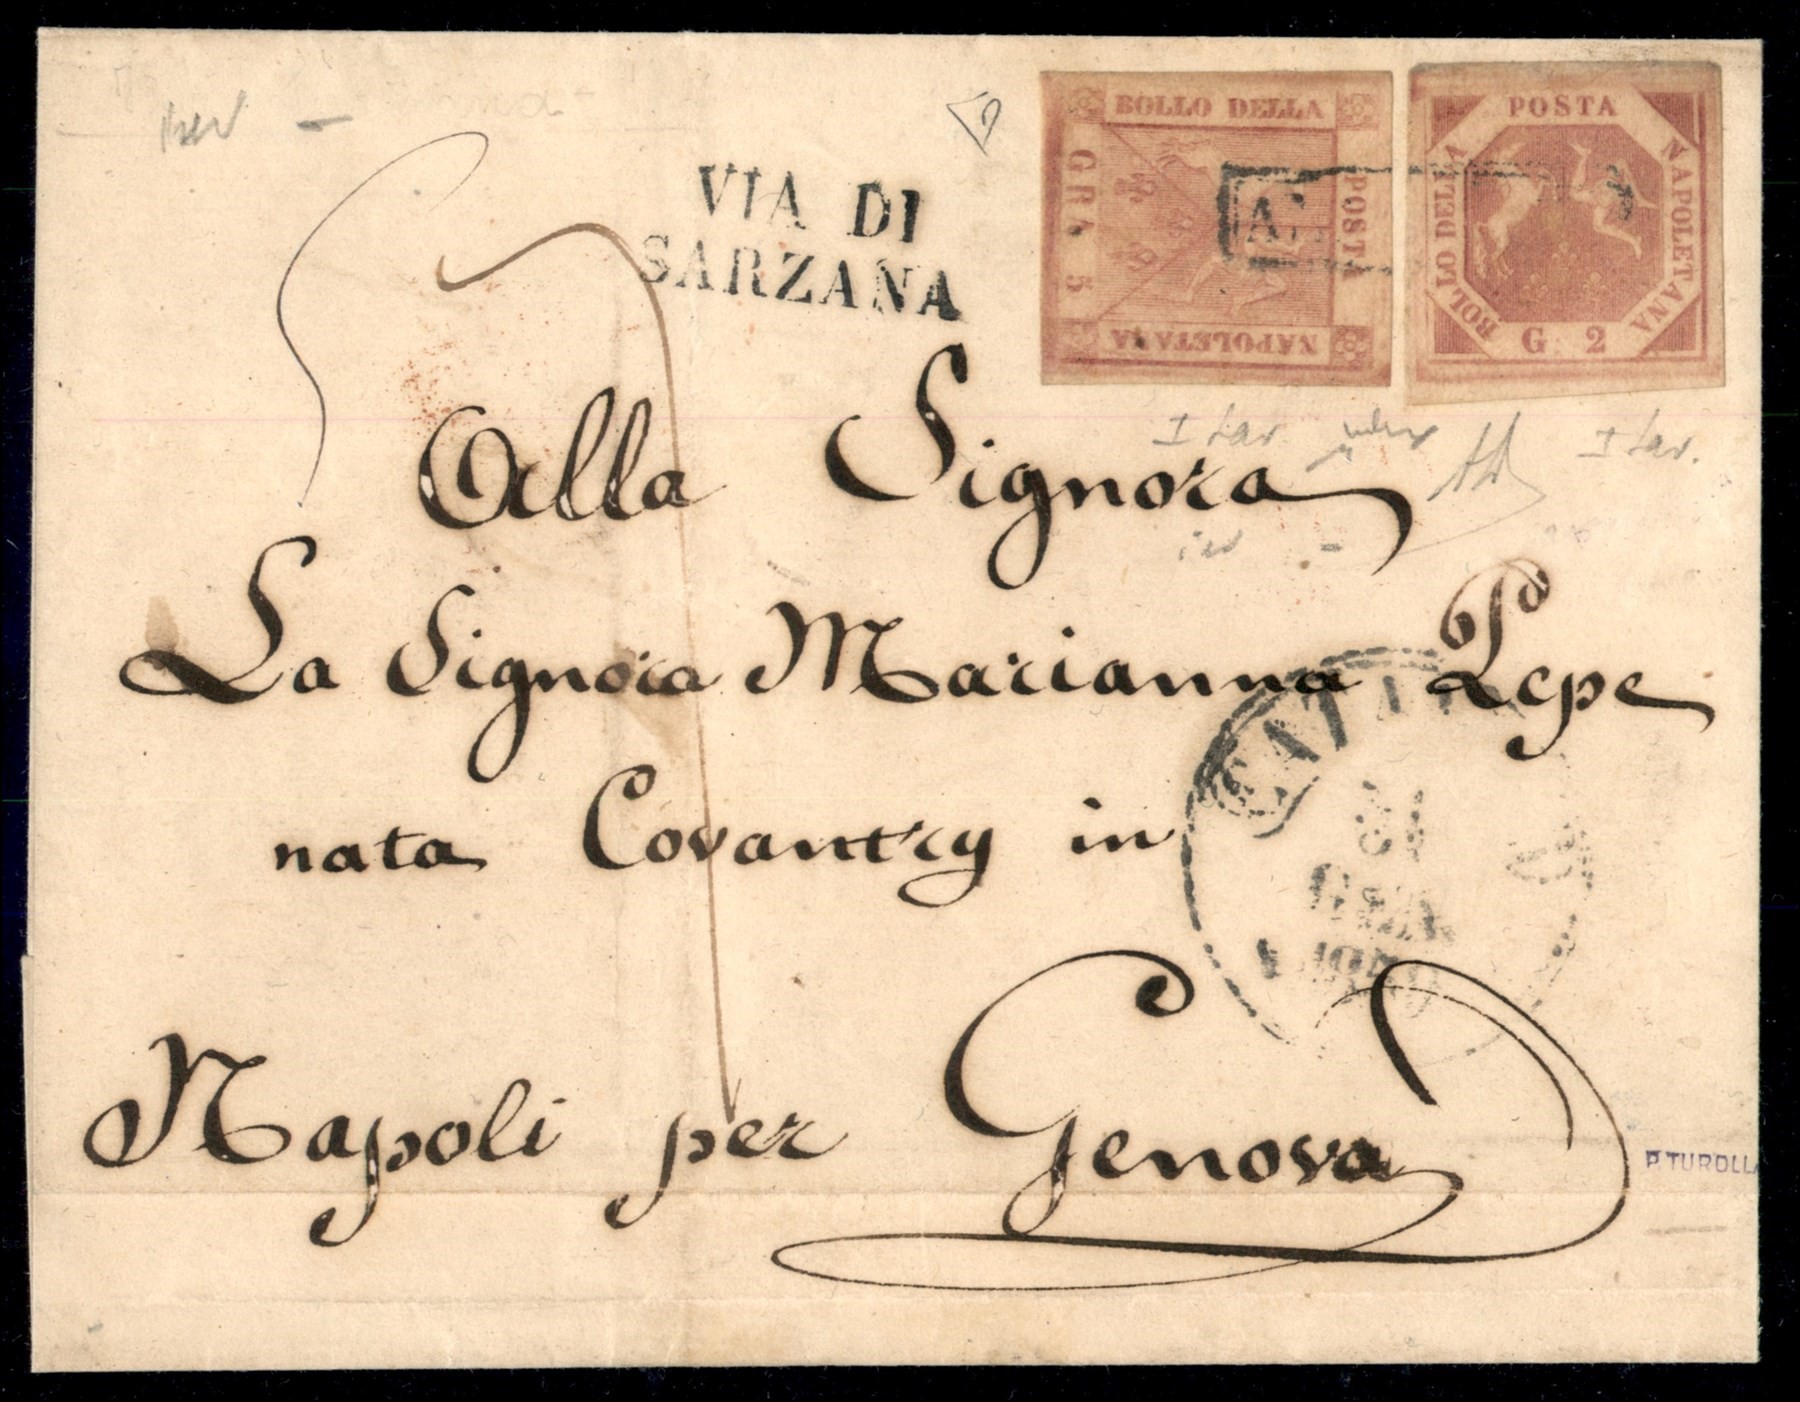 VIA DI
SARZANA
BOLLO DELLA
POSTA
NAPOLETANA
GRA 5
POSTA
NAPOLETANA
BOLLO DELLA
G. 2
I tav.
I tav.
Alla Signora
La Signora Marianna Pepe
nata Covantry in
Napoli per Genova
GEN
P. TUROLLA